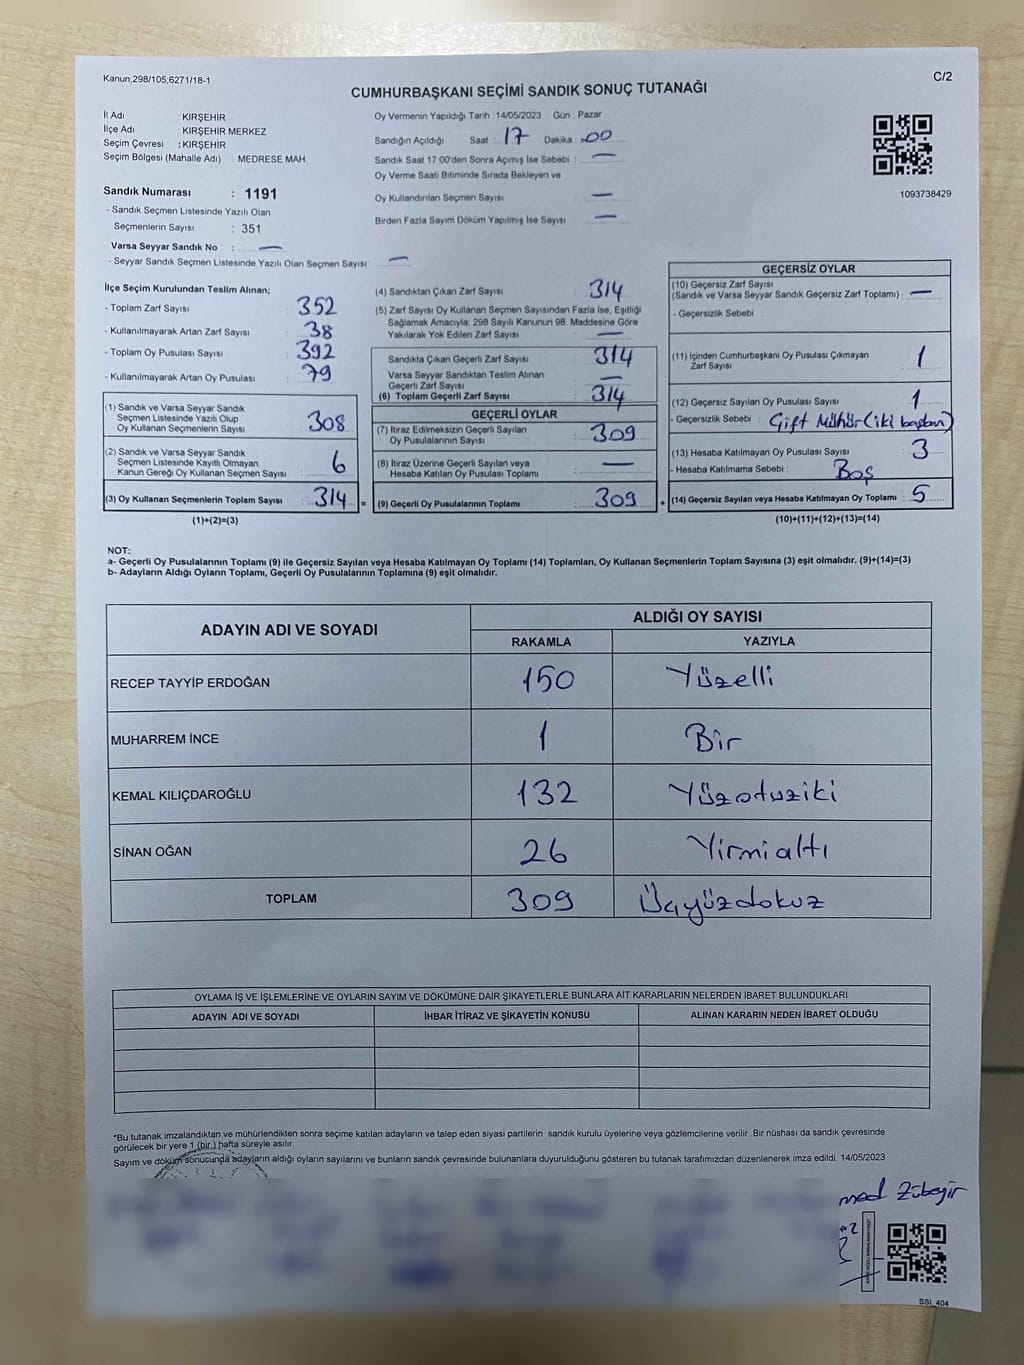 Kanun;298/105;6271/18-1
C/2
CUMHURBAŞKANI SEÇİMİ SANDIK SONUÇ TUTANAĞI
İl Adı : KIRŞEHİR
İlçe Adı : KIRŞEHİR MERKEZ
Seçim Çevresi : KIRŞEHİR
Seçim Bölgesi (Mahalle Adı) : MEDRESE MAH
Sandık Numarası : 1191
- Sandık Seçmen Listesinde Yazılı Olan
Seçmenlerin Sayısı : 351
Varsa Seyyar Sandık No : —
- Seyyar Sandık Seçmen Listesinde Yazılı Olan Seçmen Sayısı: —
Oy Vermenin Yapıldığı Tarih : 14/05/2023 Gün : Pazar
Sandığın Açıldığı Saat : 17 Dakika : 00
Sandık Saat 17:00'den Sonra Açımış İse Sebebi : —
Oy Verme Saati Bitiminde Sırada Bekleyen ve
Oy Kullandırılan Seçmen Sayısı —
Birden Fazla Sayım Döküm Yapılmış İse Sayısı —
1093738429
İlçe Seçim Kurulundan Teslim Alınan;
- Toplam Zarf Sayısı : 352
- Kullanılmayarak Artan Zarf Sayısı : 38
- Toplam Oy Pusulası Sayısı : 392
- Kullanılmayarak Artan Oy Pusulası : 79
(1) Sandık ve Varsa Seyyar Sandık
Seçmen Listesinde Yazılı Olup
Oy Kullanan Seçmenlerin Sayısı : 308
(2) Sandık ve Varsa Seyyar Sandık
Seçmen Listesinde Kayıtlı Olmayan
Kanun Gereği Oy Kullanan Seçmen Sayısı : 6
(3) Oy Kullanan Seçmenlerin Toplam Sayısı : 314
(1)+(2)=(3)
(4) Sandıktan Çıkan Zarf Sayısı : 314
(5) Zarf Sayısı Oy Kullanan Seçmen Sayısından Fazla İse, Eşitliği
Sağlamak Amacıyla; 298 Sayılı Kanunun 98. Maddesine Göre
Yakılarak Yok Edilen Zarf Sayısı —
Sandıkta Çıkan Geçerli Zarf Sayısı : 314
Varsa Seyyar Sandıktan Teslim Alınan
Geçerli Zarf Sayısı —
(6) Toplam Geçerli Zarf Sayısı : 314
GEÇERLİ OYLAR
(7) İtiraz Edilmeksizin Geçerli Sayılan
Oy Pusulalarının Sayısı : 309
(8) İtiraz Üzerine Geçerli Sayılan veya
Hesaba Katılan Oy Pusulası Toplamı : —
= (9) Geçerli Oy Pusulalarının Toplamı : 309
GEÇERSİZ OYLAR
(10) Geçersiz Zarf Sayısı
(Sandık ve Varsa Seyyar Sandık Geçersiz Zarf Toplamı) : —
- Geçersizlik Sebebi :
(11) İçinden Cumhurbaşkanı Oy Pusulası Çıkmayan
Zarf Sayısı : 1
(12) Geçersiz Sayılan Oy Pusulası Sayısı : 1
- Geçersizlik Sebebi : Çift Mühür (iki baştan)
(13) Hesaba Katılmayan Oy Pusulası Sayısı : 3
- Hesaba Katılmama Sebebi : Boş
+ (14) Geçersiz Sayılan veya Hesaba Katılmayan Oy Toplamı : 5
(10)+(11)+(12)+(13)=(14)
NOT:
a- Geçerli Oy Pusulalarının Toplamı (9) ile Geçersiz Sayılan veya Hesaba Katılmayan Oy Toplamı (14) Toplamları, Oy Kullanan Seçmenlerin Toplam Sayısına (3) eşit olmalıdır. (9)+(14)=(3)
b- Adayların Aldığı Oyların Toplamı, Geçerli Oy Pusulalarının Toplamına (9) eşit olmalıdır.
ADAYIN ADI VE SOYADI ALDIĞI OY SAYISI
RAKAMLA YAZIYLA
RECEP TAYYİP ERDOĞAN 150 Yüzelli
MUHARREM İNCE 1 Bir
KEMAL KILIÇDAROĞLU 132 Yüzotuziki
SİNAN OĞAN 26 Yirmialtı
TOPLAM 309 Üçyüzdokuz
OYLAMA İŞ VE İŞLEMLERİNE VE OYLARIN SAYIM VE DÖKÜMÜNE DAİR ŞİKAYETLERLE BUNLARA AİT KARARLARIN NELERDEN İBARET BULUNDUKLARI
ADAYIN ADI VE SOYADI İHBAR İTİRAZ VE ŞİKAYETİN KONUSU ALINAN KARARIN NEDEN İBARET OLDUĞU
*Bu tutanak imzalandıktan ve mühürlendikten sonra seçime katılan adayların ve talep eden siyasi partilerin sandık kurulu üyelerine veya gözlemcilerine verilir. Bir nüshası da sandık çevresinde
görülecek bir yere 1 (bir) hafta süreyle asılır.
Sayım ve döküm sonucunda adayların aldığı oyların sayılarını ve bunların sandık çevresinde bulunanlara duyurulduğunu gösteren bu tutanak tarafımızdan düzenlenerek imza edildi. 14/05/2023
med Zübeyir
SSİ_404